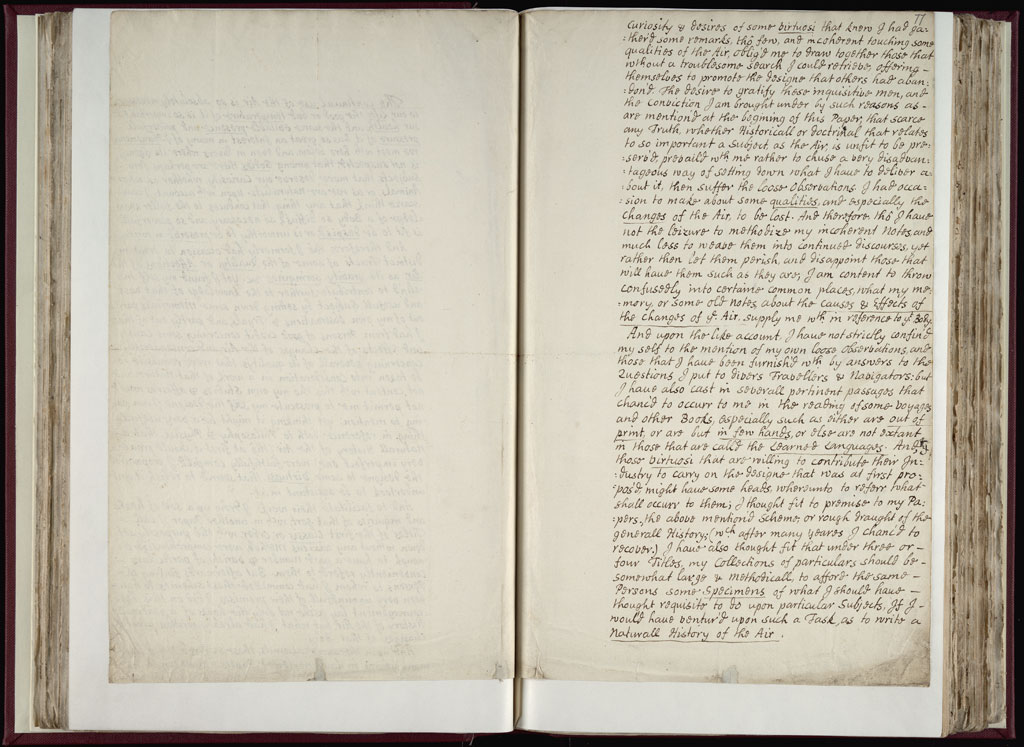 11
Curiosity & desires of some virtuosi that knew I had ga-
:ther'd some remarks, tho few, and incoherent touching some
qualities of the Air, oblig'd me to draw together those that
without a troublesome search I could retrieve, offering -
themselves to promote the designe that others had aban-
:don'd. The desire to gratify these inquisitive men, and
the conviction I am brought under by such reasons as -
are mention'd at the begining of this Paper, that scarce
any Truth, whether Historicall or doctrinal that relates
to so important a Subject, as the Air, is unfit to be pre-
:serv'd, prevail'd wth me rather to chuse a very disadvan-
:tageous way of setting down what I have to deliver a-
:bout it, then suffer the loose Observations I had occa-
:sion to make about some qualities, and especially the
Changes of the Air, to be lost. And therefore, tho I have
not the leizure to methodize my incoherent Notes, and
much less to weave them into continued discourses, yet
rather then let them perish, and disappoint those that
will have them such as they are; I am content to throw
confusedly into certaine common places, what my me-
:mory, or some old notes, about the Causes & Effects of
the Changes of ye Air, supply me wth in reference to ye Body.
And upon the like account, I have not strictly confin'd
my self to the mention of my own loose Observations, and
those that I have been furnish'd wth by answers to the
Questions I put to divers Travellers & Navigators: but
I have also cast in severall pertinent passages that
chanc'd to occurr to me in the reading of some Voyages
and other Books, especially such as either are out of
print, or are but in few hands, or else are not extant
in those that are call'd the Learned Languages. And yt
those virtuosi that are willing to contribute their In-
:dustry to carry on the designe that was at first pro-
:pos'd, might have some heads, whereunto to referr what
shall occurr to them; I thought fit to premise to my Pa-
:pers, the above mention'd Scheme, or rough draught of the
generall History; (wch after many yeares I chanc'd to
recover.) I have also thought fit that under three or -
four Titles, my Collections of particulars should be -
somewhat large & Methodicall, to afford the same -
Persons some Specimens of what I should have -
thought requisite to do upon particular Subjects, If I -
would have ventur'd upon such a Task, as to write a
Naturall History of the Air.